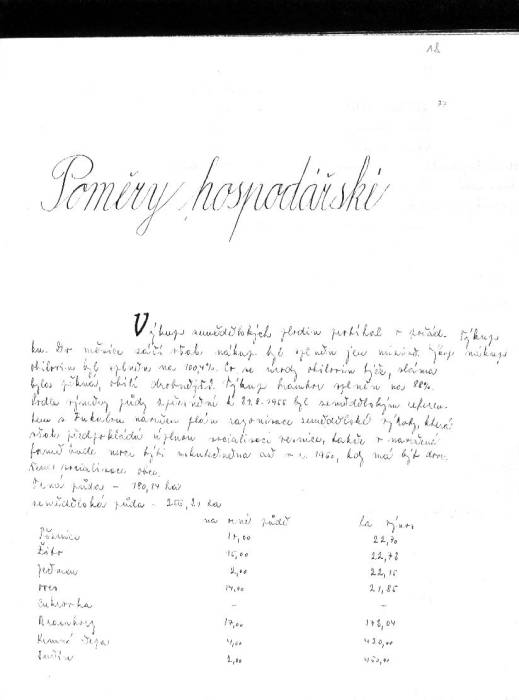 18
Poměry hospodářské
Výkup zemědělských plodin probíhal v pořád. Výkup
ku. Do měsíce září však nákup byl splněn jen
obilovin byl splněn na 100%. Co se úrody obilovin týče, sláma
byla pěkná, obilí drobnější. Výkup brambor splněn na 88%.
Podle výměry půdy zjištěné k 1955 byl zemědělským referen-
tem s navržen plán zemědělské výroby, která
však předpokládá úplnou socialisaci vesnice, takže v navržené
formě bude moci býti uskutečněna až v r. 1960, kdy má být dovr-
šena socialisace obce.
Orná půda - 180,14 ha
zemědělská půda - 21 ha
na orné půdě ha výnos
Pšenice 22,70
Žito 15,00 22,78
Ječmen 2,00 22,15
oves 14,00 21,85
Cukrovka - -
Brambory 17,00 178,04
Krmná řepa 4,00 420,00
2,00